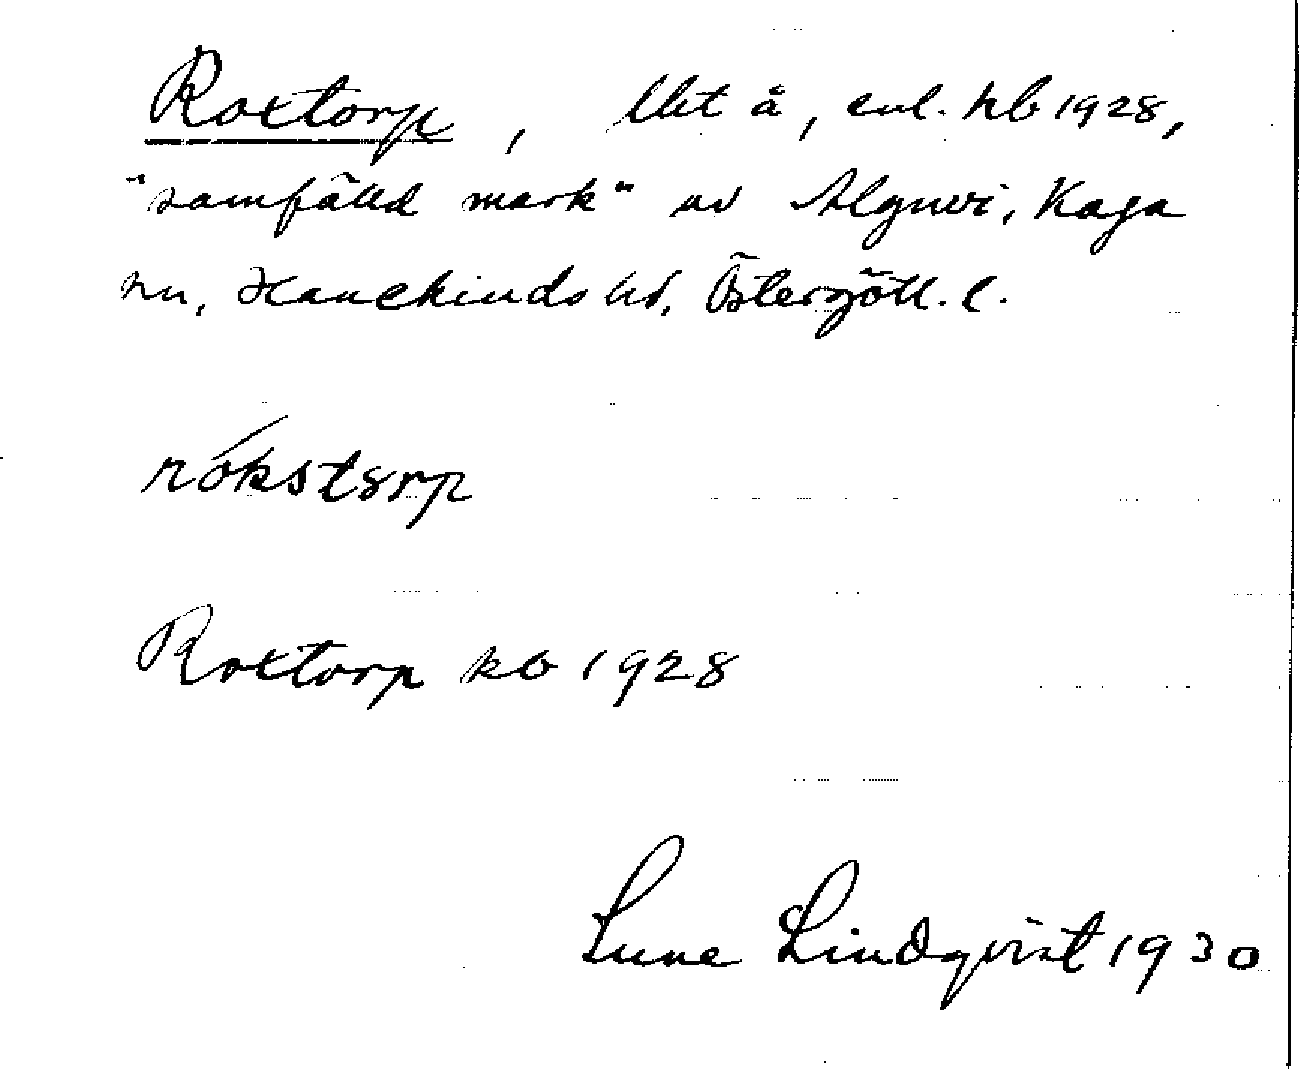 Roxtorp, lht å, enl. kb 1928,
"samfälld mark" av Alguvi, Kaga
sn, Hanekinds hd, Östergötl. l.
rókstorp
Roxtorp kb 1928
Sune Lindqvist 1930